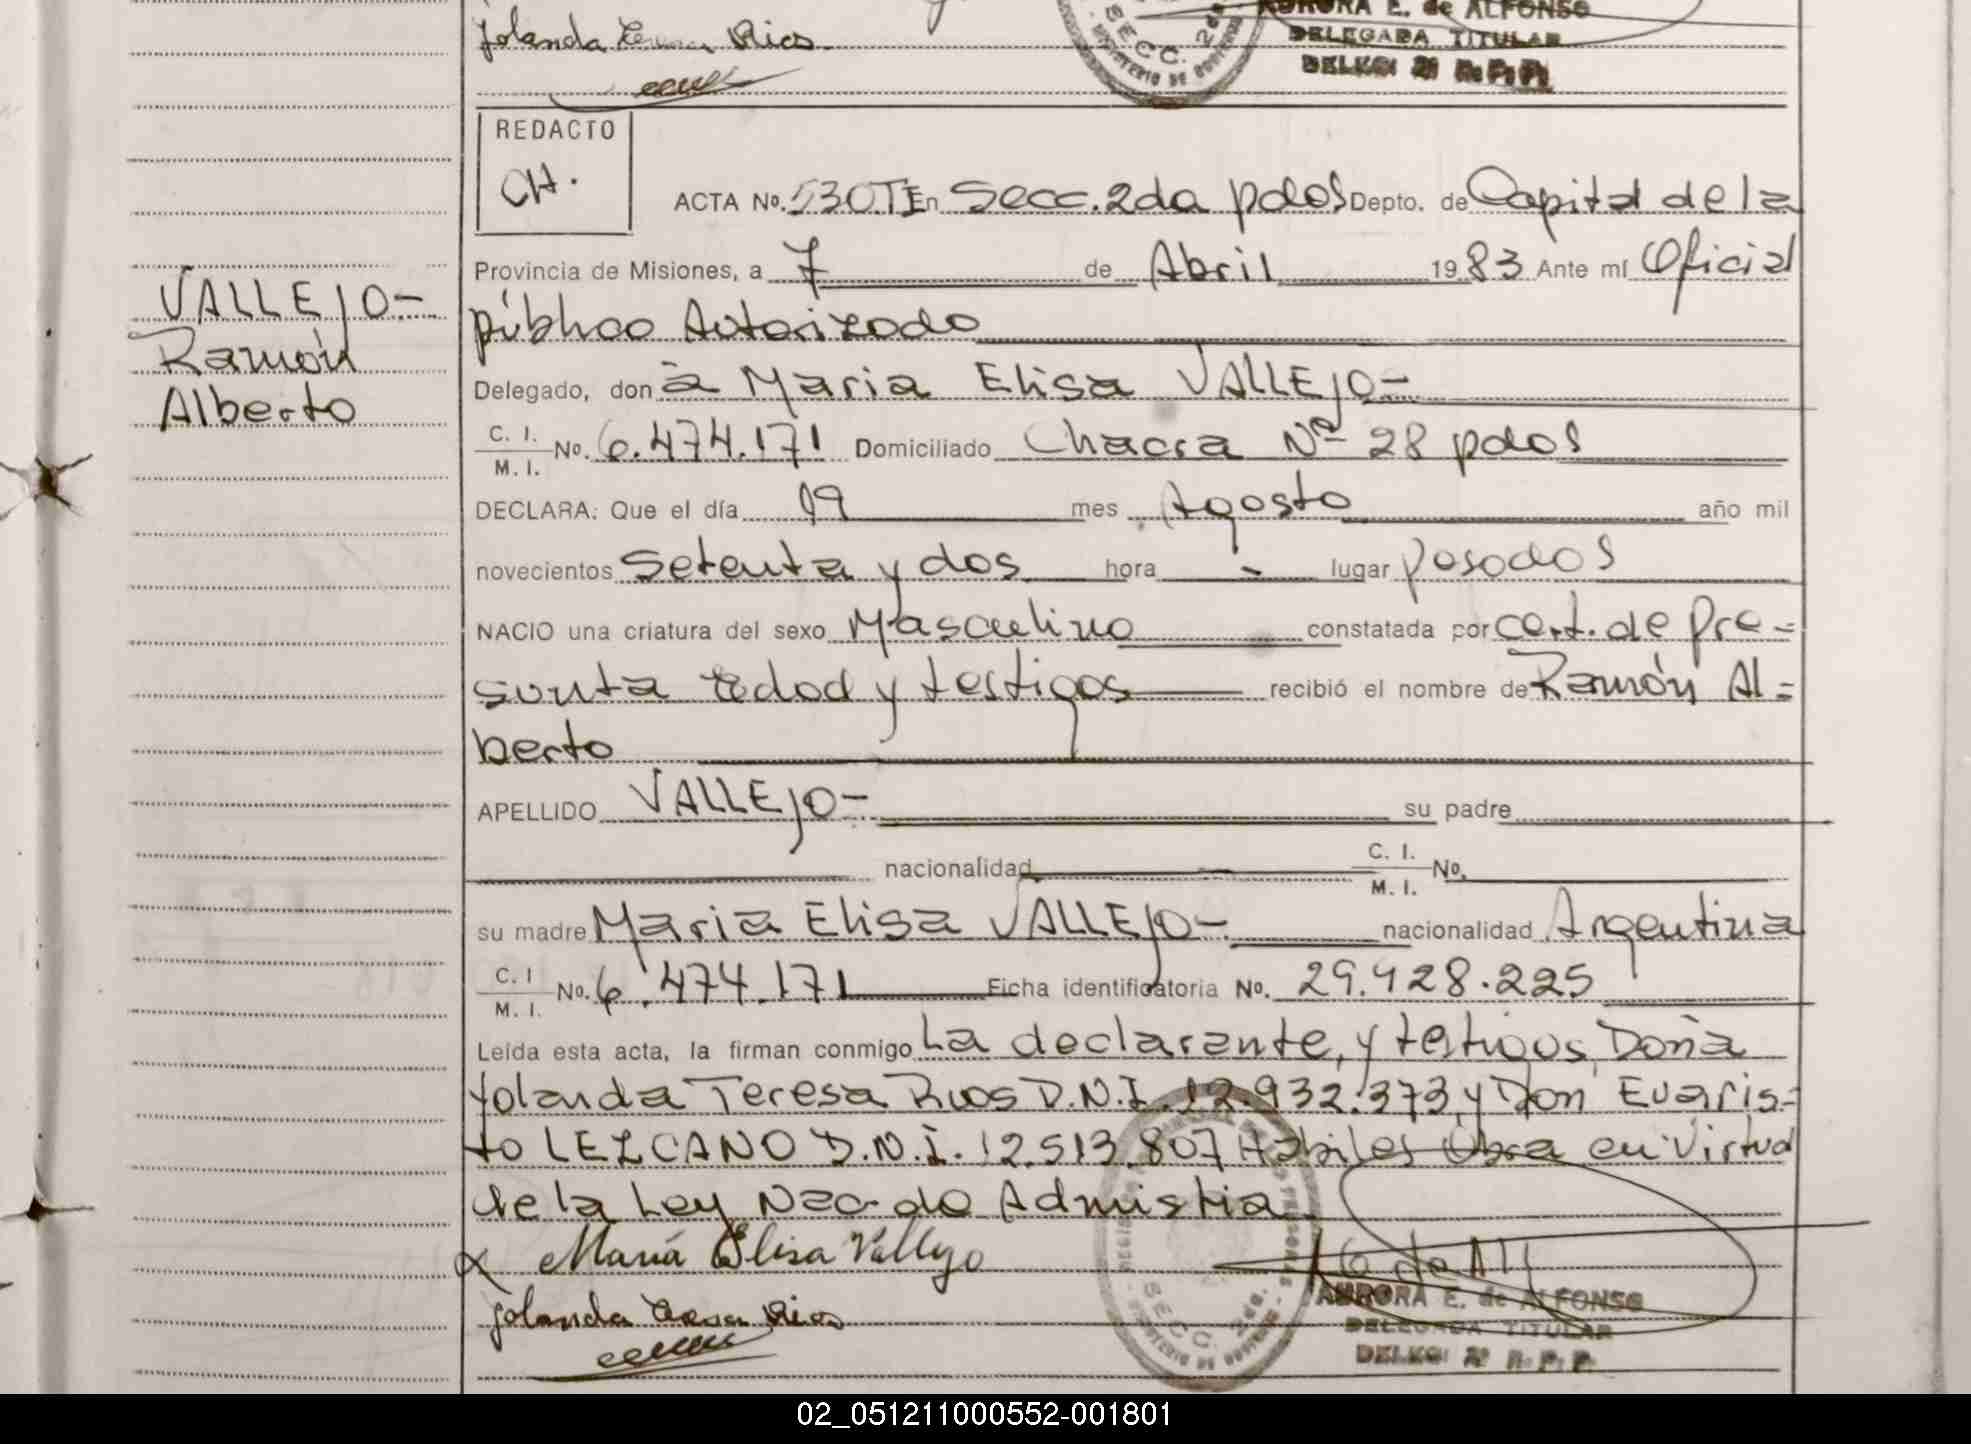 Yolanda Teresa Rios
AURORA E. de ALFONSO
DELEGADA TITULAR
SECC. 2da.
REDACTO
CH.
ACTA No. 530TE En Secc. 2da pdas Depto. de Capital de la
Provincia de Misiones, a 7 de Abril 1983 Ante mí Oficial
público Autorizado
VALLEJO-
Ramón
Alberto
Delegado, don a Maria Elisa VALLEJO-
C. I. M. I. No. 6.474.171 Domiciliado Chacra Nº 28 pdas
DECLARA: Que el día 19 mes Agosto año mil
novecientos setenta y dos hora - lugar posadas
NACIO una criatura del sexo Masculino constatada por cert. de pre-
sunta edad y testigos recibió el nombre de Ramón Al=
berto
APELLIDO VALLEJO- su padre
nacionalidad C. I. M. I. No.
su madre Maria Elisa VALLEJO- nacionalidad Argentina
C. I M. I. No. 6.474.171 Ficha identificatoria No. 29.928.225
Leída esta acta, la firman conmigo La declarante, y testigos, Doña
Yolanda Teresa Rios D.N.I. 12.932.373, y Don Evaris-
to LEZCANO D.N.I. 12.513.807 Habiles Obra en virtud
de la Ley Nac. de Admistia
María Elisa Vallejo
Yolanda Teresa Rios
AURORA E. de ALFONSO
DELEGADA TITULAR
SECC. 2da.
02_051211000552-001801